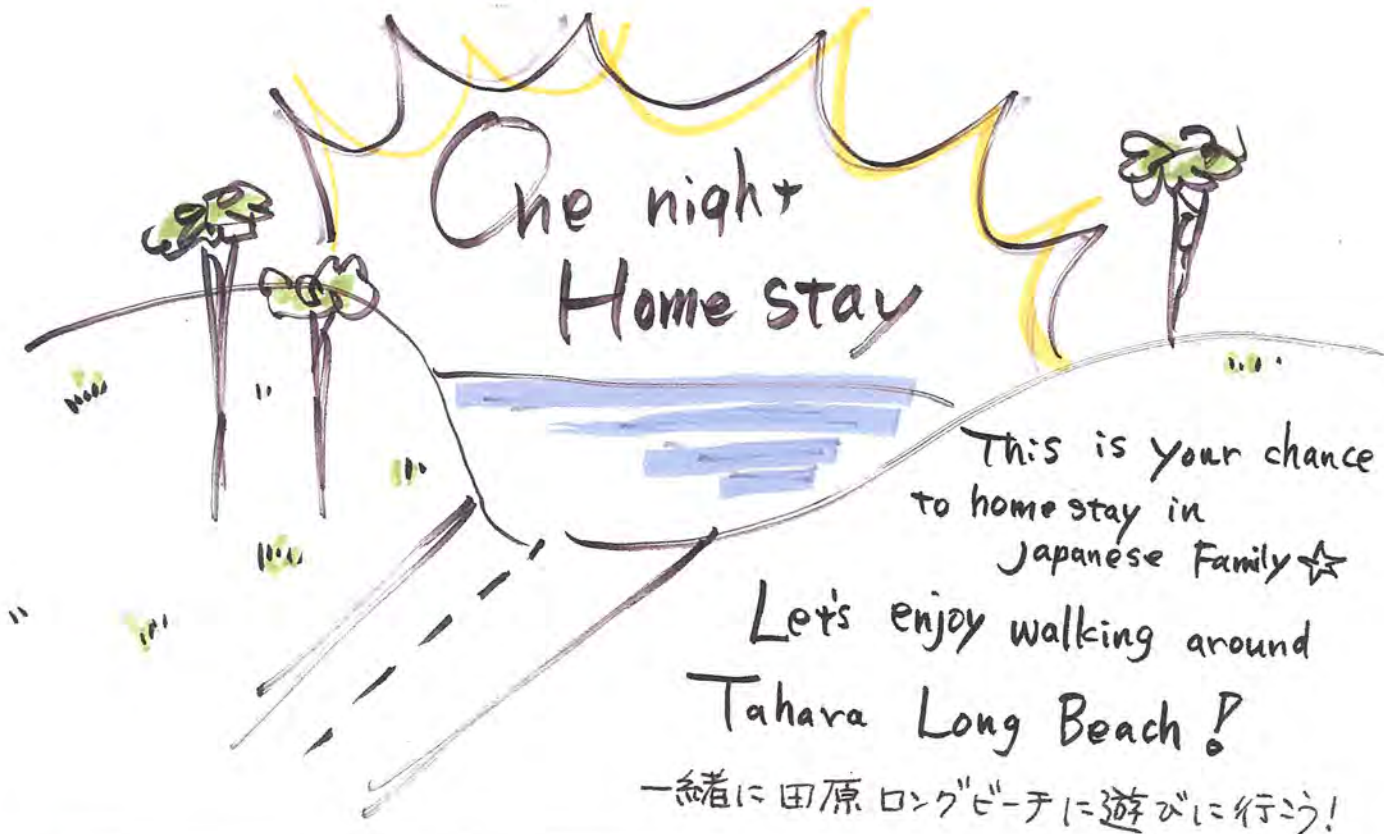 One night
Home stay
This is your chance
to home stay in
Japanese Family☆
Let's enjoy walking around
Tahara Long Beach!
一緒に田原ロングビーチに遊びに行こう!